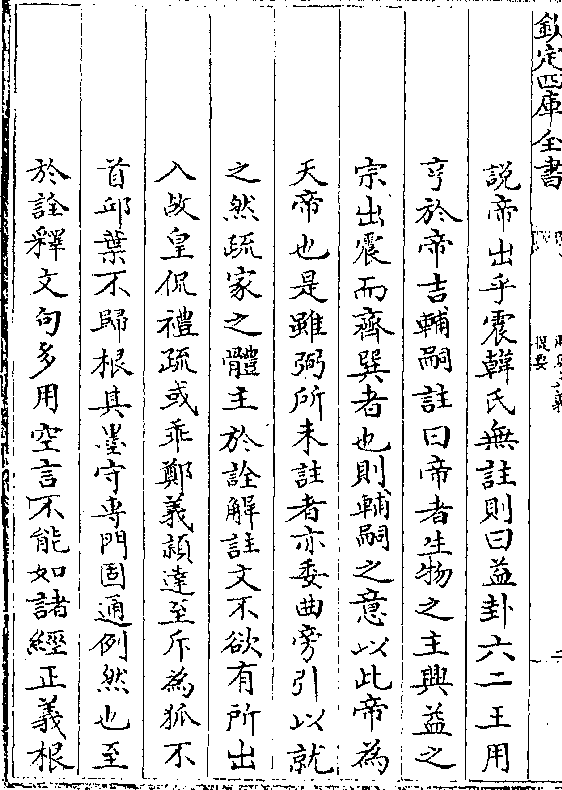 欽定四庫全書
提要
説帝出乎震韓氏無註則曰益卦六二王用
亨於帝吉輔嗣註曰帝者生物之主興益之
宗出震而齊巽者也則輔嗣之意以此帝為
天帝也是雖弼所未註者亦委曲旁引以就
之然疏家之體主於詮解註文不欲有所出
入故皇侃禮疏或乖鄭義頴達至斥為狐不
首邱葉不歸根其墨守專門固通例然也至
於詮釋文句多用空言不能如諸經正義根